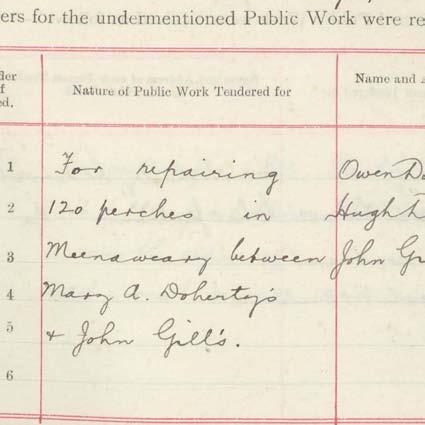 ers for the undermentioned Public Work were re
der
f
ed.
Nature of Public Work Tendered for
Name and
1 For repairing Owen Do
2 120 perches in Hugh
3 Meenaweary between John Gr
4 Mary A. Doherty's
5 & John Gill's.
6